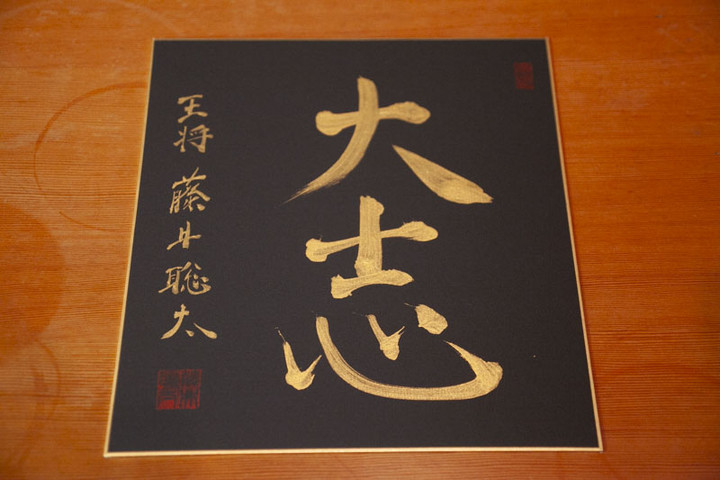 大志
王将 藤井聡太